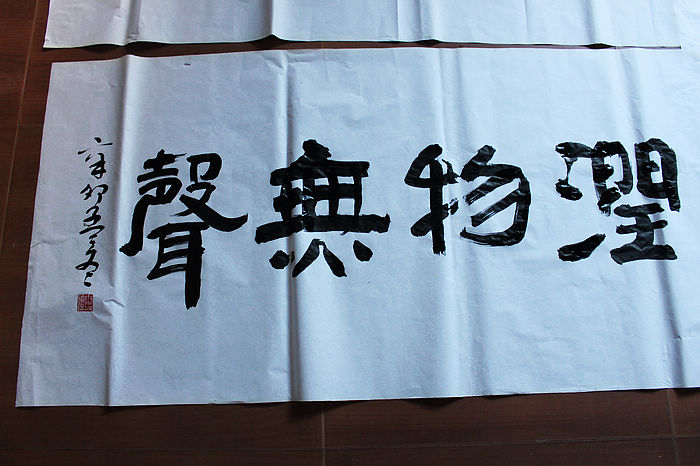 潤物無聲
辛卯